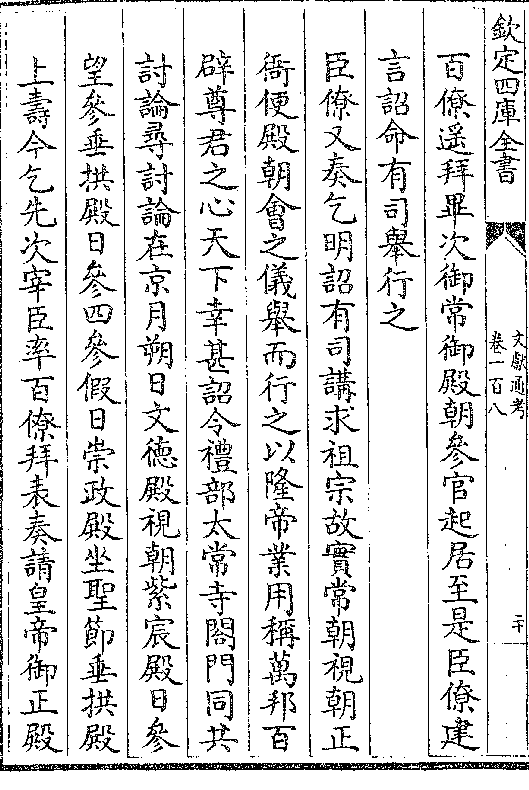 欽定四庫全書
文獻通考
卷一百八
二十
百僚遥拜畢次御常御殿朝參官起居至是臣僚建
言詔命有司舉行之
臣僚又奏乞明詔有司講求祖宗故實常朝視朝正
衙便殿朝會之儀舉而行之以隆帝業用稱萬邦百
辟尊君之心天下幸甚詔令禮部太常寺閤門同共
討論尋討論在京月朔日文德殿視朝紫宸殿日參
望參垂拱殿日參四參假日崇政殿坐聖節垂拱殿
上壽今乞先次宰臣率百僚拜表奏請皇帝御正殿